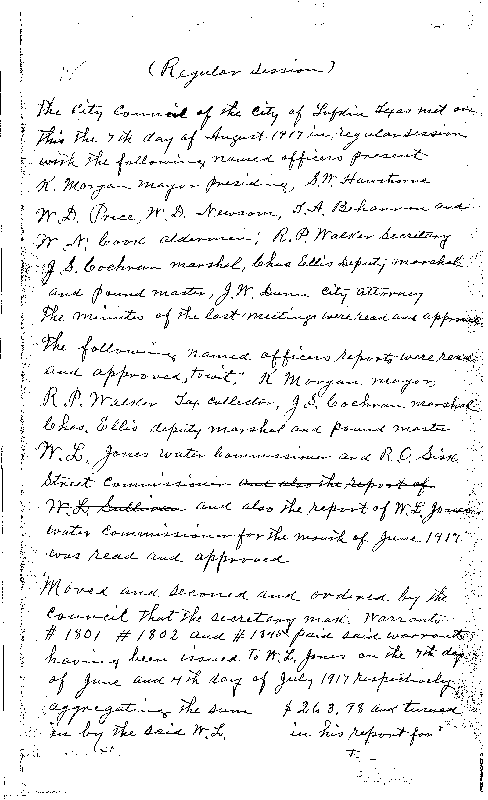 (Regular Session)
The City Council of the City of Lufkin Texas met on
this the 7th day of August 1917 in regular session
with the following named officers present
K. Morgan mayor presiding, S.W. Hawthorne
W.D. Price, W.D. Newsom, T.A. Bohannon and
W.N. Coon aldermen; R.P. Walker Secretary
J.S. Cochran marshal, Chas Ellis Deputy marshal
and pound master, J.W. Dunn City Attorney
The minutes of the last meetings were read and approved
The following named officers reports were read
and approved, towit; K Morgan mayor,
R.P. Walker Tax collector, J.S. Cochran marshal
Chas. Ellis deputy marshal and pound master
W.L. Jones water Commissioner and R.C. Sisk
Street Commissioner and also the report of
W.L. Sullivan and also the report of W.L Jones
water Commissioner for the month of June 1917
was read and approved
Moved and seconed and ordered by the
Council that the secretary mark Warrants
# 1801 # 1802 and # paid said warrants
having been issued to W.L. Jones on the 7th day
of June and 4th day of July 1917 respectively
aggregating the sum $263.98 and turned
in by the said W.L. in his report for